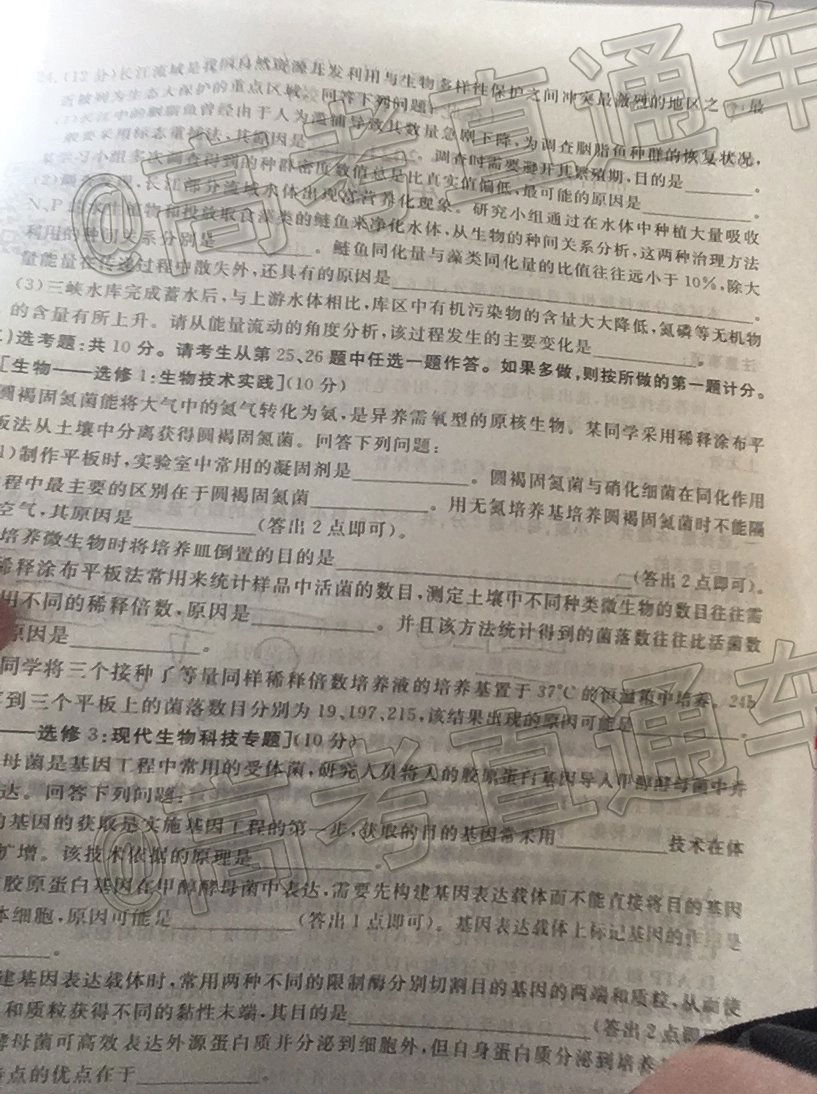 24.(12分)长江流域是我国自然资源开发利用与生物多样性保护之间冲突最激烈的地区之一,最
近被列为生态大保护的重点区域。回答下列问题:
(1)长江中的胭脂鱼曾经由于人为滥捕导致其数量急剧下降,为调查胭脂鱼种群的恢复状况,
般要采用标志重捕法,其原因是 。调查时需要避开其繁殖期,目的是 。
某学习小组多次调查得到的种群密度数值总是比真实值偏低,最可能的原因是 。
(2)调查发现,长江部分流域水体出现富营养化现象。研究小组通过在水体中种植大量吸收
N、P的水生植物和投放取食藻类的鲢鱼来净化水体,从生物的种间关系分析,这两种治理方法
利用的种间关系分别是 。鲢鱼同化量与藻类同化量的比值往往远小于10%,除大
量能量在传递过程中散失外,还具有的原因是 。
(3)三峡水库完成蓄水后,与上游水体相比,库区中有机污染物的含量大大降低,氮磷等无机物
的含量有所上升。请从能量流动的角度分析,该过程发生的主要变化是 。
)选考题:共10分。请考生从第25、26题中任选一题作答。如果多做,则按所做的第一题计分。
[生物——选修1:生物技术实践](10分)
圆褐固氮菌能将大气中的氮气转化为氨,是异养需氧型的原核生物。某同学采用稀释涂布平
板法从土壤中分离获得圆褐固氮菌。回答下列问题:
1)制作平板时,实验室中常用的凝固剂是 。圆褐固氮菌与硝化细菌在同化作用
程中最主要的区别在于圆褐固氮菌 。用无氮培养基培养圆褐固氮菌时不能隔
空气,其原因是 (答出2点即可)。
培养微生物时将培养皿倒置的目的是 (答出2点即可)。
稀释涂布平板法常用来统计样品中活菌的数目,测定土壤中不同种类微生物的数目往往需
用不同的稀释倍数,原因是 。并且该方法统计得到的菌落数往往比活菌数
原因是 。
同学将三个接种了等量同样稀释倍数培养液的培养基置于37℃的恒温箱中培养。24h
到三个平板上的菌落数目分别为19、197、215,该结果出现的原因可能是
——选修3:现代生物科技专题](10分)
母菌是基因工程中常用的受体菌,研究人员将人的胶原蛋白基因导入甲醇酵母菌中并
达。回答下列问题:
的基因的获取是实施基因工程的第一步,获取的目的基因常采用 技术在体
扩增。该技术依据的原理是 。
胶原蛋白基因在甲醇酵母菌中表达,需要先构建基因表达载体而不能直接将目的基因
体细胞,原因可能是 (答出1点即可)。基因表达载体上标记基因的作用是
。
建基因表达载体时,常用两种不同的限制酶分别切割目的基因的两端和质粒,从而使
和质粒获得不同的黏性末端,其目的是 (答出2点即
酵母菌可高效表达外源蛋白质并分泌到细胞外,但自身蛋白质分泌到培养
特点的优点在于 。